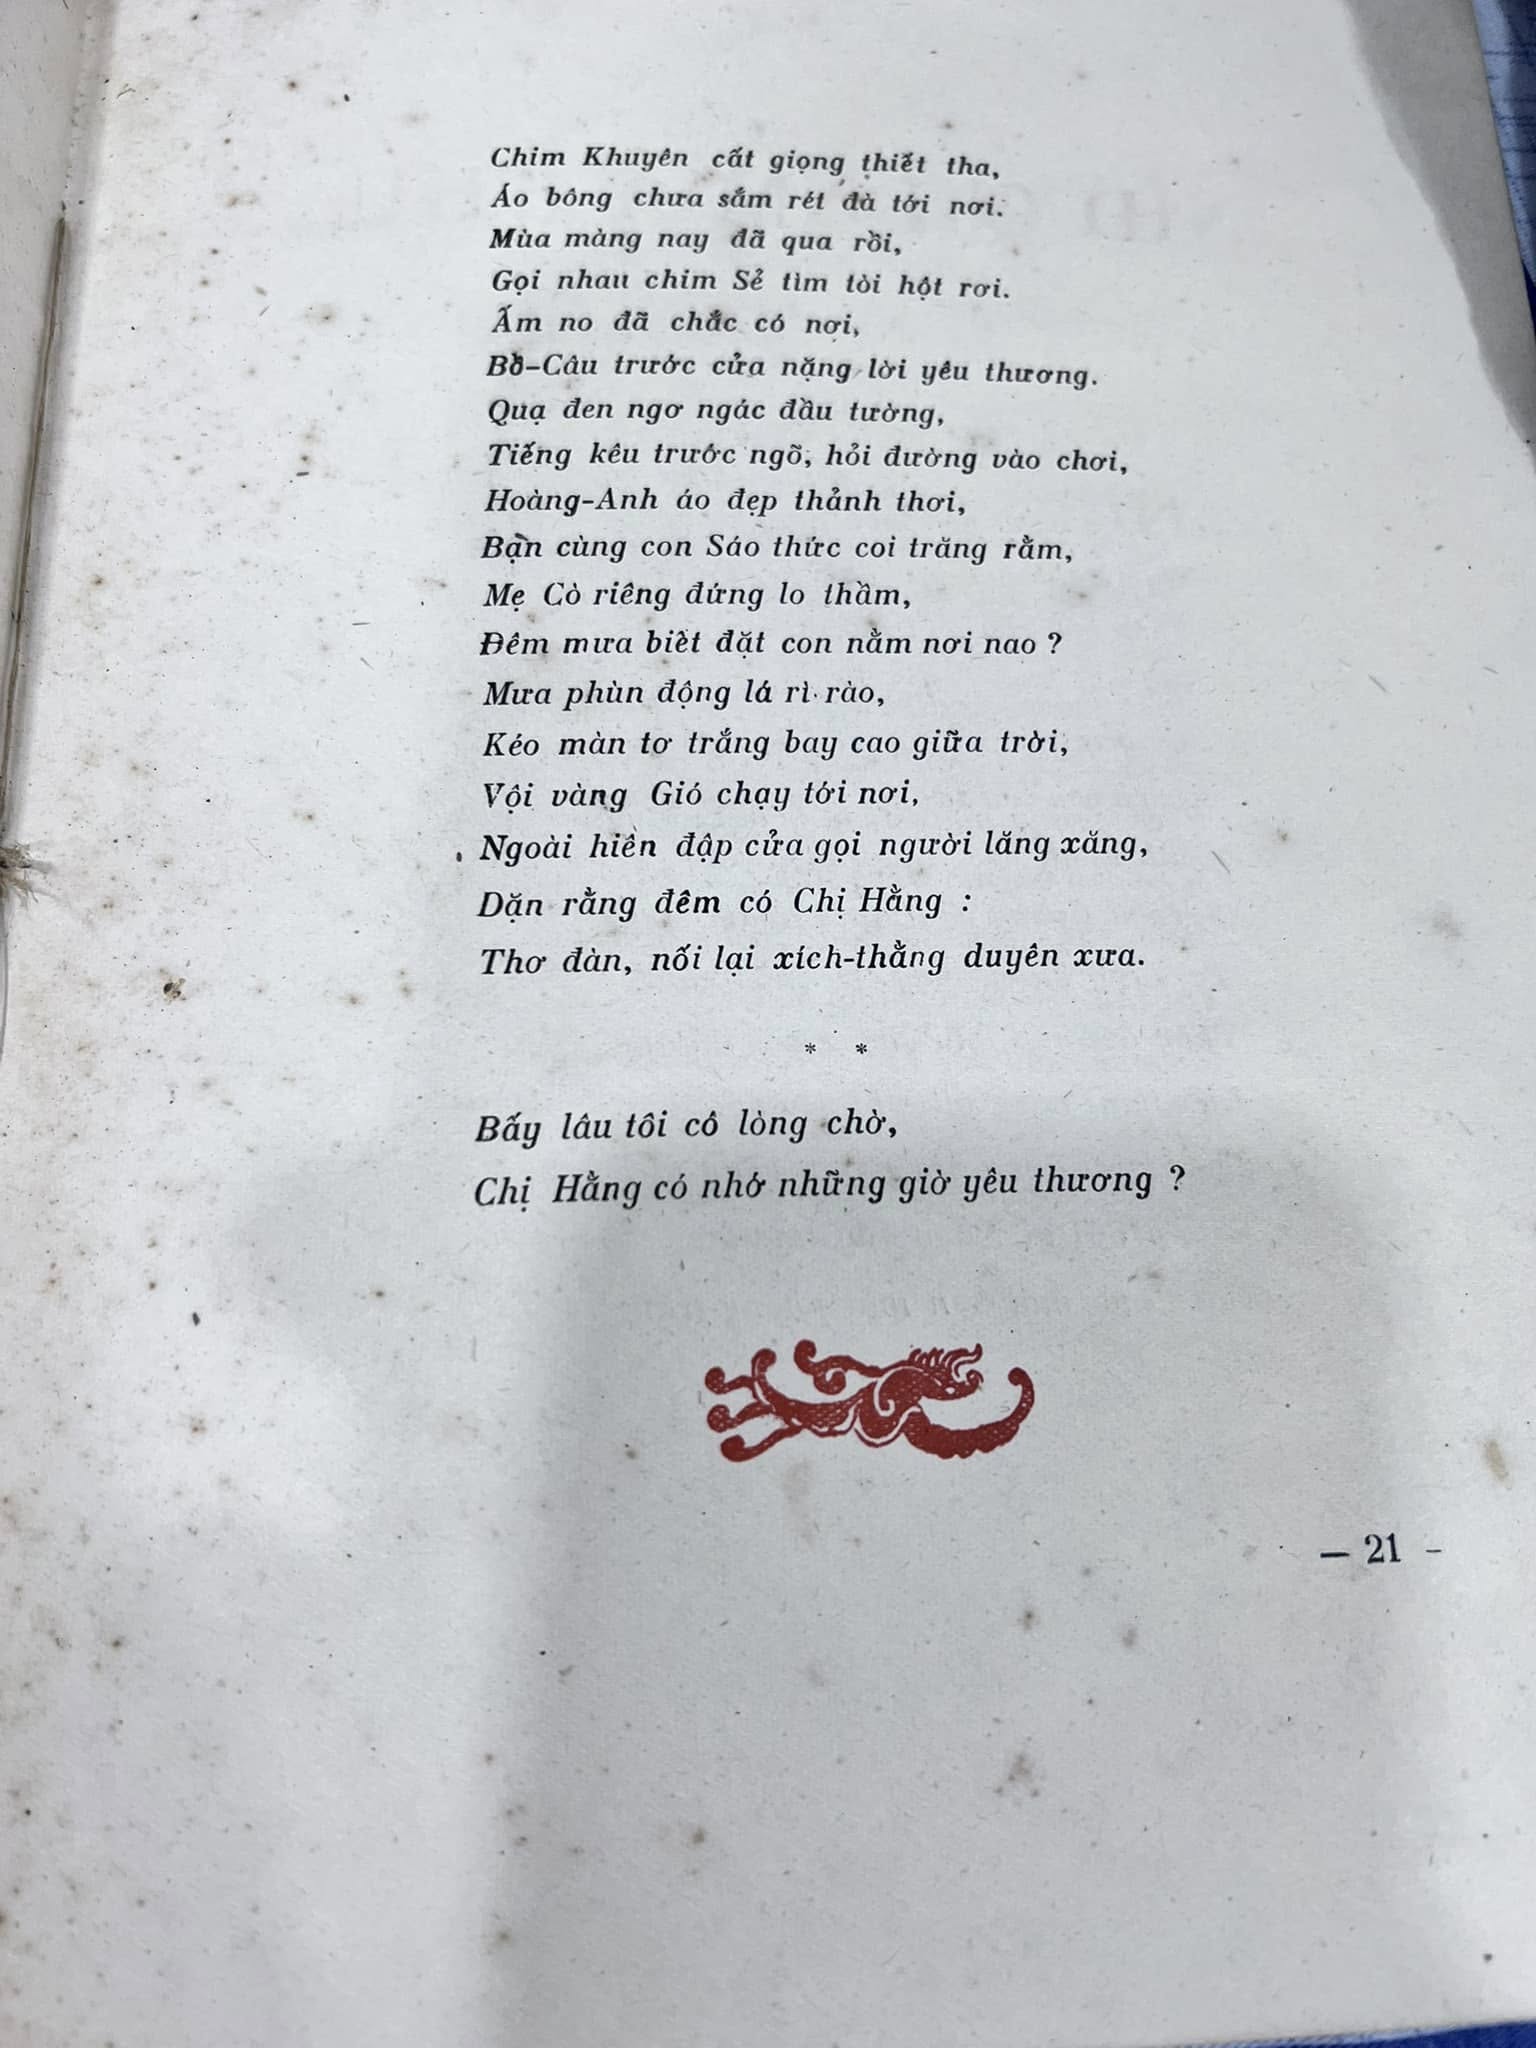 Chim Khuyên cất giọng thiết tha,
Áo bông chưa sắm rét đà tới nơi.
Mùa màng nay đã qua rồi,
Gọi nhau chim Sẻ tìm tòi hột rơi.
Ấm no đã chắc có nơi,
Bồ-Câu trước cửa nặng lời yêu thương.
Quạ đen ngơ ngác đầu tường,
Tiếng kêu trước ngõ, hỏi đường vào chơi,
Hoàng-Anh áo đẹp thảnh thơi,
Bạn cùng con Sáo thức coi trăng rằm,
Mẹ Cò riêng đứng lo thầm,
Đêm mưa biết đặt con nằm nơi nao ?
Mưa phùn động lá rì rào,
Kéo màn tơ trắng bay cao giữa trời,
Vội vàng Gió chạy tới nơi,
Ngoài hiên đập cửa gọi người lăng xăng,
Dặn rằng đêm có Chị Hằng :
Thơ đàn, nối lại xích-thằng duyên xưa.
* *
Bấy lâu tôi có lòng chờ,
Chị Hằng có nhớ những giờ yêu thương ?
— 21 -